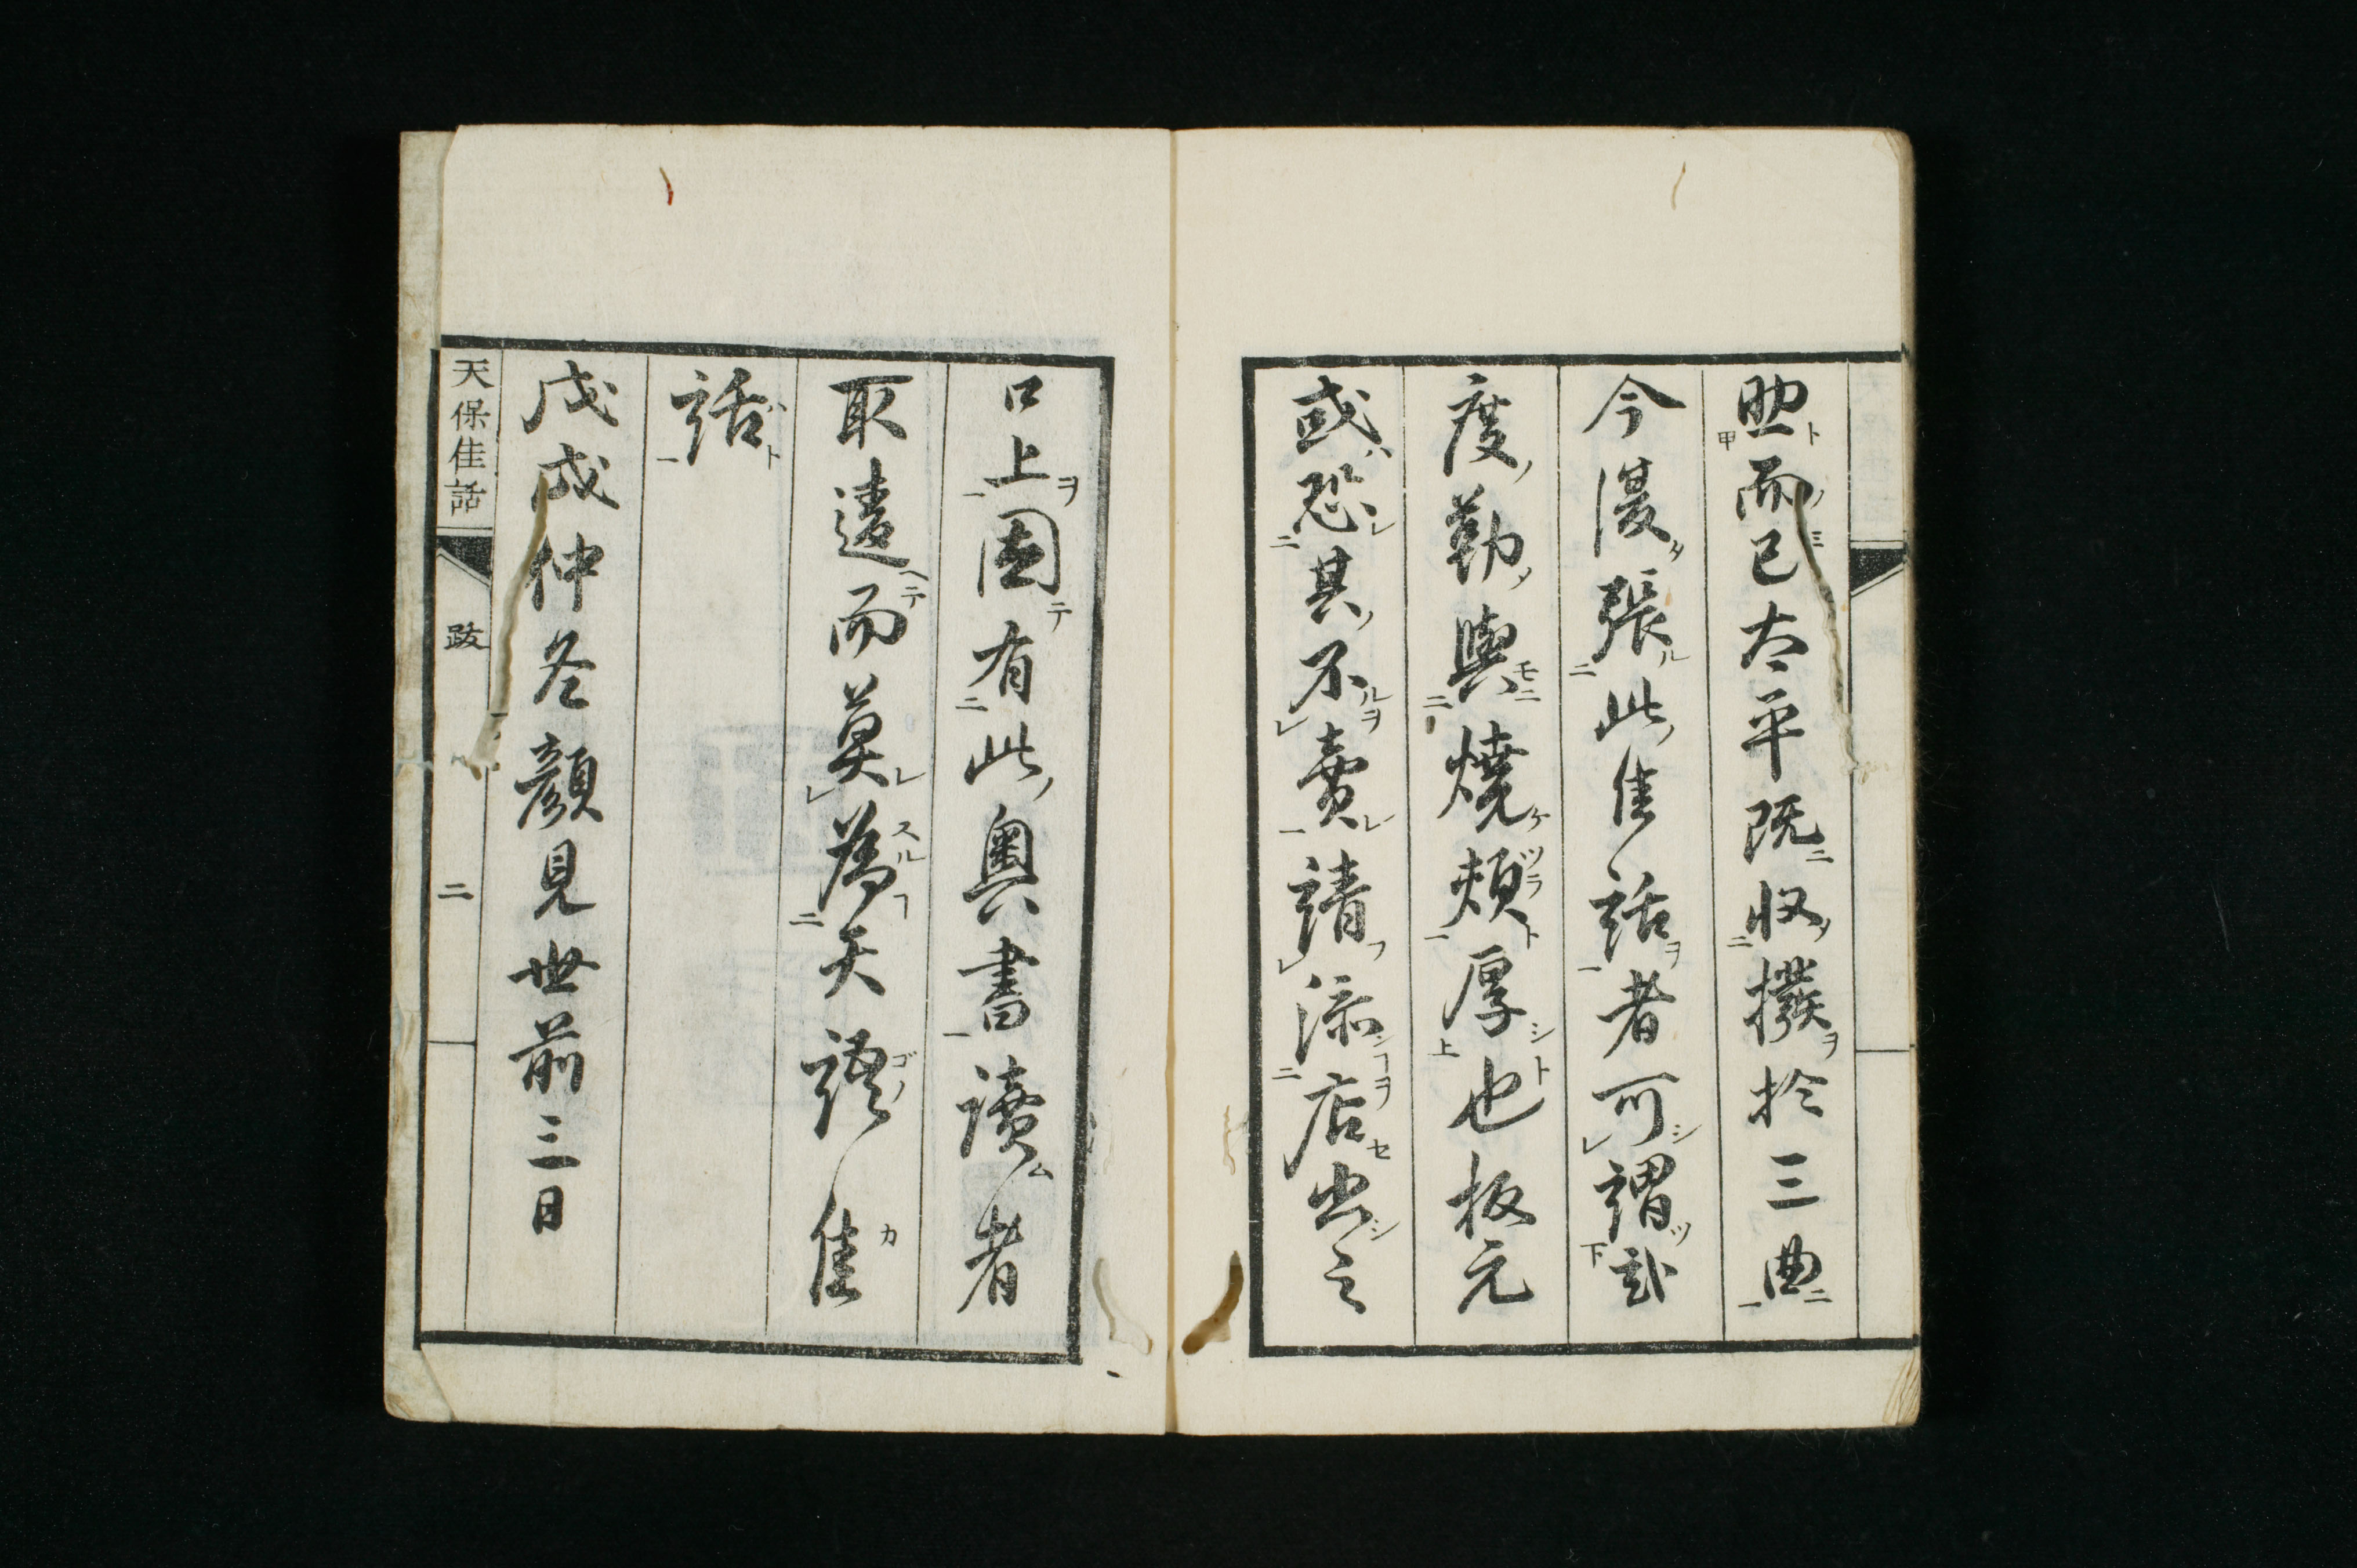 助而已太平既収撥於三曲
今漫張此佳話者可謂弐
度勤與燒頬厚也板元
或恐其不賣請添店出之
口上因有此奥書讀者
取違而莫為天語佳
話
戊戌仲冬顔見世前三日
天保佳話 跋 二